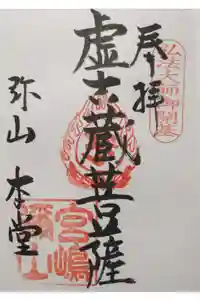 弘法大師御開基
奉拝
虚空蔵菩薩
弥山 本堂
宮嶋
弥山